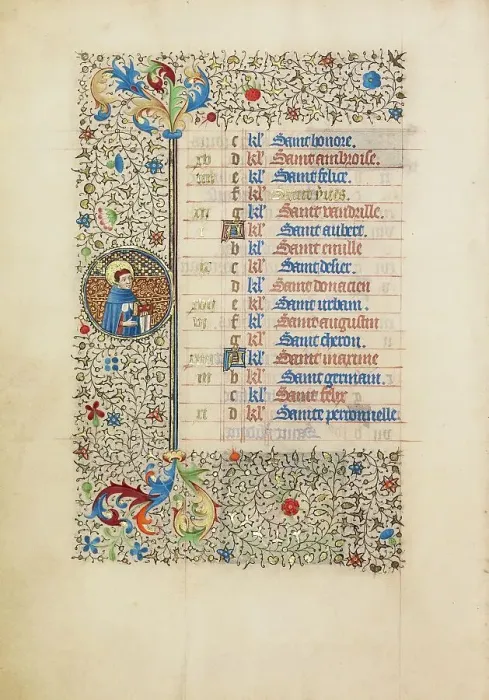 c kl' Saint honore.
xv d kl' Saint ambroise.
e kl' Saint felice.
f kl' Saint
xii g kl' Saint vandrille.
A kl' Saint aubert.
b kl' Saint emille
c kl' Saint desier.
d kl' Saint donacien
e kl' Saint urbain.
f kl' Saint augustin
g kl' Saint cheron.
A kl' Saint
iii b kl' Saint germain.
c kl' Saint felix
xi d kl' Sainte perronnelle